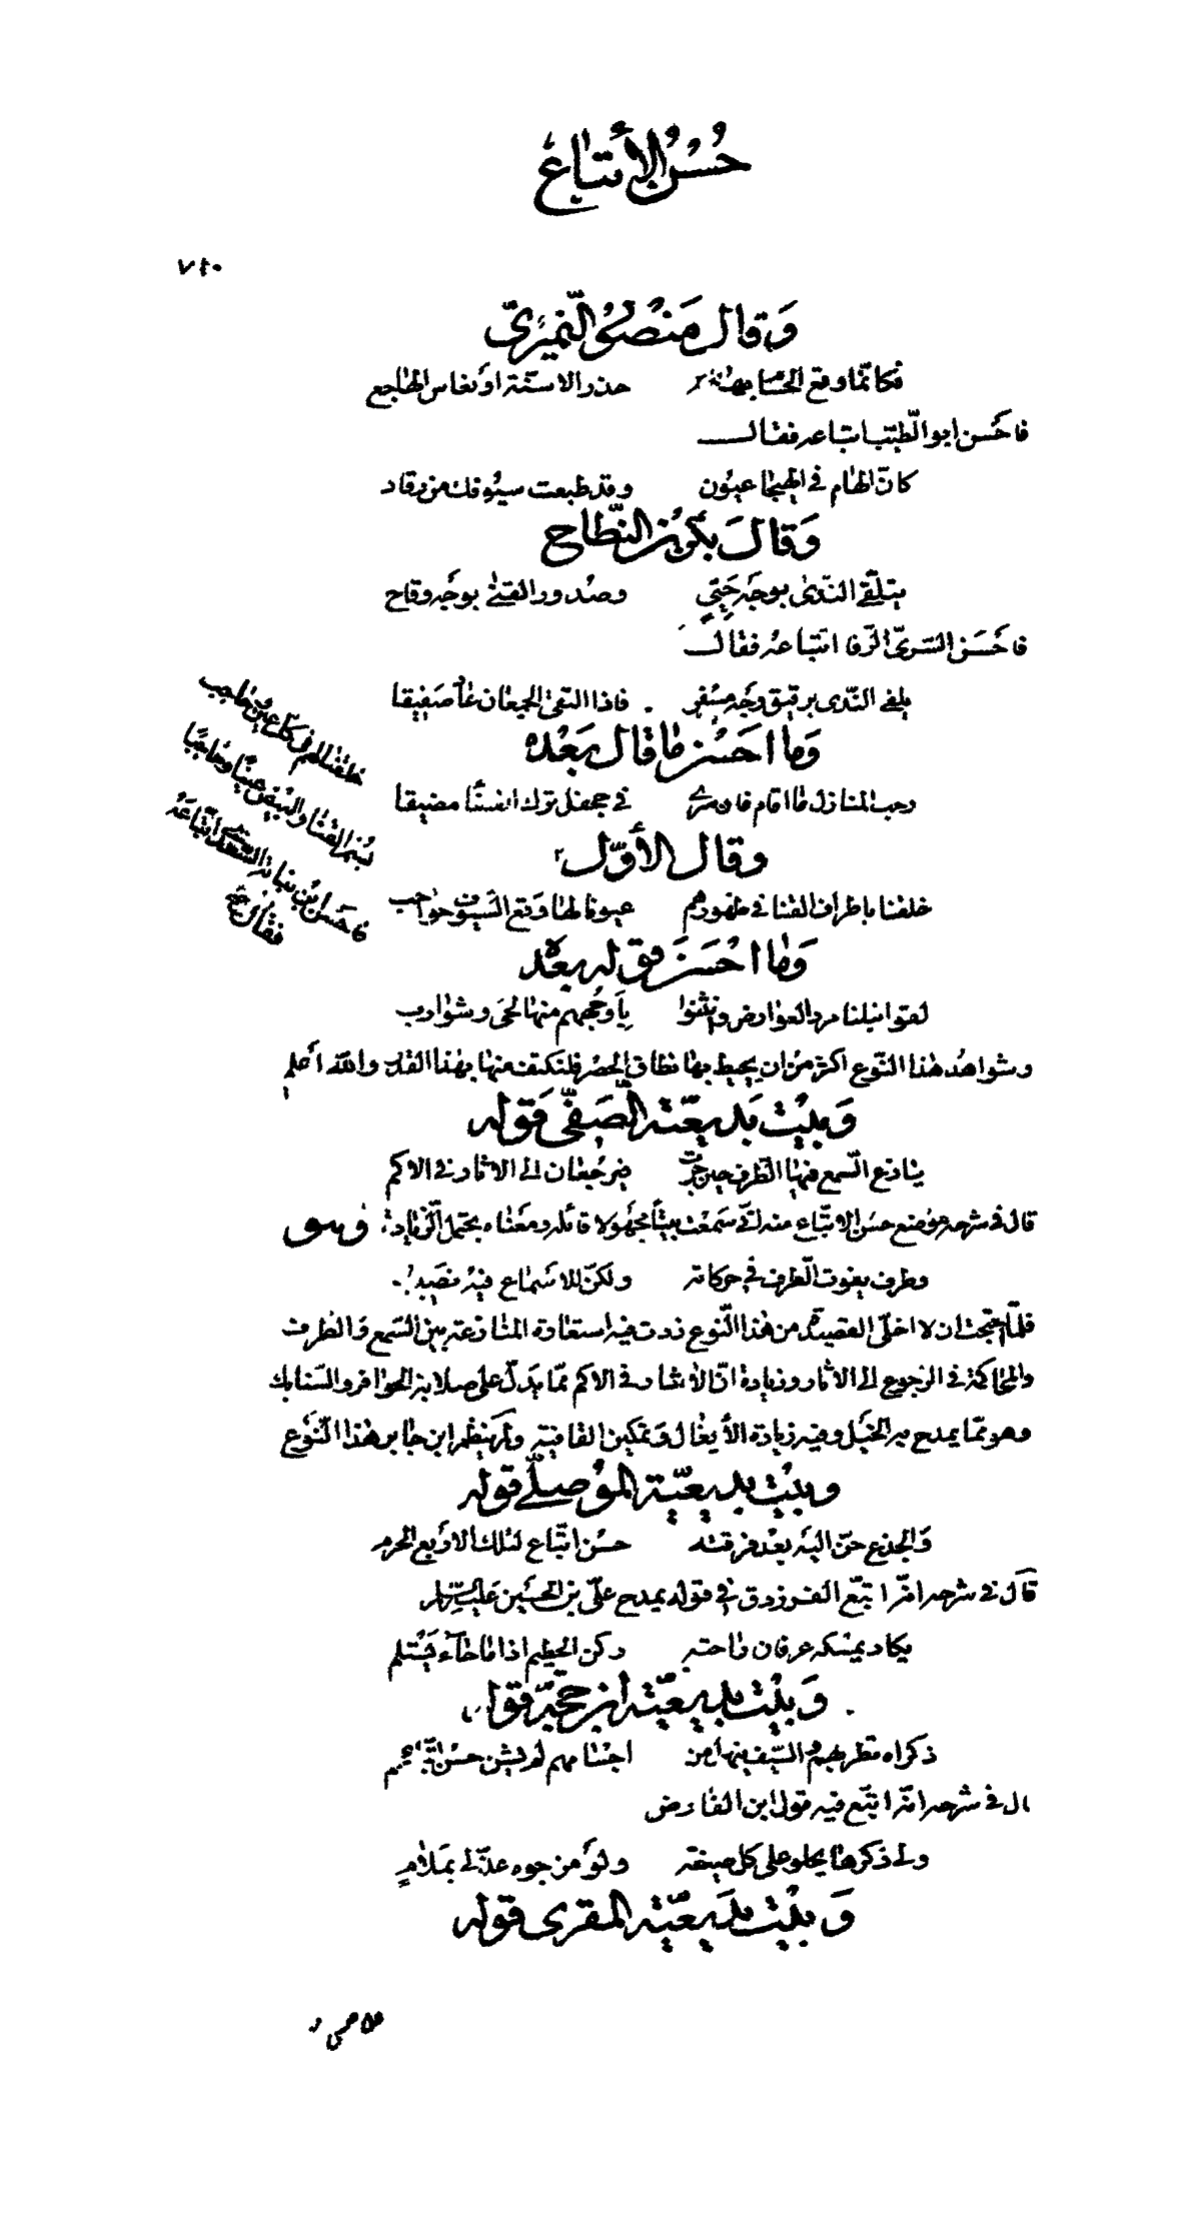 حُسْنُ الأتباع
٧٤٠
وَقال مَنصُور النّميريّ
فكانّما وقع الحسام بهامه حذر الاسنّة او نعاس الهاجع
فاحسن ابو الطّيّب اتباعه فقال
كانّ الهام في الهيجا عيون وقد طبعت سيوفك من رقاد
وَقالَ بَكر بن النّطاح
يتلقّى النّدى بوجه حيي وصدور القنى بوجه وقاح
فاحسَن السّريّ الرّفا اتباعه فقال
يلقى النّدى برقيق وجه مسفر فاذا التقى الجمعان عاد صفيقا
وَما احسَن ما قال بَعْده
رحب المنازل ما اقام فان سرى في جحفل ترك الفضا مضيقا
وقال الأوّل
خلقنا باطراف القنا في ظهورهم عيونا لها وقع السّيوف حواجب
فاحسَن ابن نباتة السّعدي اتباعه
فقال
خلقنا لهم في كلّ عين وحاجب
بسمر القنا والبيض عينًا وحاجبًا
وَما احْسَنَ قوله بعده
لقوا نبلنا مرد العوارض وانثنوا باوجههم منها لحى وشوارب
وشواهد هذا النّوع اكثر من ان يحيط بها نطاق الحصر فلنكتف منها بهذا القدر والله أعلم
وَبيْت بَديعيّته الصّفيّ قوله
ينازع السّمع فيها الطّرف حين جرت فيرجعان الى الاثار في الاكم
قال في شرحه موضع حسن الاتّباع منه انّي سمعت بيتًا مجهولا قائله ومعناه يحتمل الزّيادة وهو
وطرف يفوت الطّرف في حركاته ولكنّ للاسماع فيه نصيب
فلمّا احتجت ان لا اخلّي القصيدة من هذا النّوع زدت فيه استعارة المنازعة بين السّمع وَالطرف
والمحاكمة في الرّجوع الى الاثار وزيادة انّ الاثار في الاكم ممّا يدلّ على صلابة الحوافر والسّنابك
وهو ممّا يمدح به الخيل وفيه زيادة الأيغال وَتمكين القافية ولم ينظم ابن جابر هذا النّوع
وبيْت بديعيّة الموصليّ قوله
وَالجذع حنّ اليه بعد فرقته حسن اتّباع لتلك الاربع الحرم
قال في شرحه انّه اتبّع الفرزدق في قوله يمدح عليّ بن الحسين عليه السّلام
يكاد يمسكه عرفان راحته ركن الحطيم اذا ما جآء يستلم
وَبيْت بديعيّته ابن حجّة قوله
ال في شرحه انّه اتبّع فيه قول ابن الفارض
ولي ذكرها يحلو على كل صيغة ولو من جوه عذّلي بملام
وَبيْت بديعيّته المقرى قوله